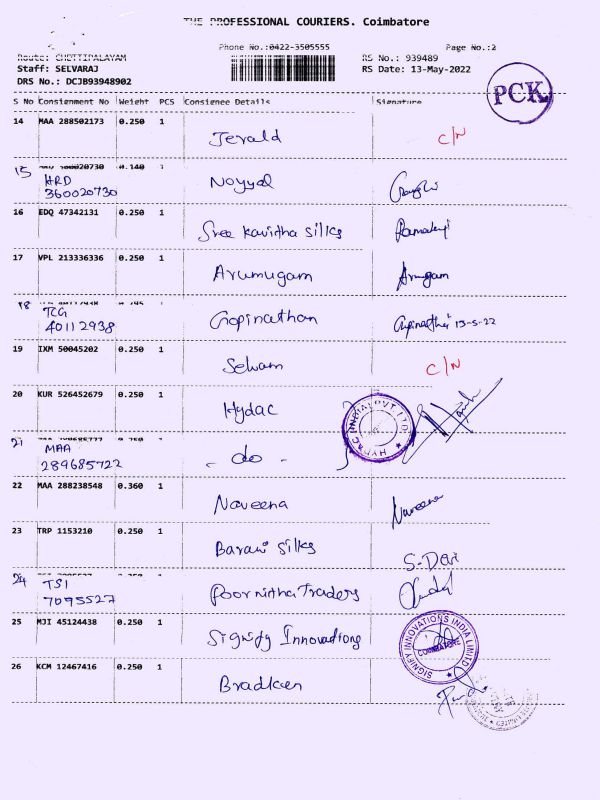 THE PROFESSIONAL COURIERS. Coimbatore
Phone No.:0422-3505555 Page No.:2
Route: CHETTIPALAYAM RS No.: 939489
Staff: SELVARAJ RS Date: 13-May-2022
DRS No.: DCJB93948902
PCK
S No Consignment No Weight PCS Consignee Details Signature
14 MAA 288502173 0.250 1 Jerald C/N
15 HRD 0.140 1 Noyyal
360020730
16 EDQ 47342131 0.250 1 Sree Kavitha Silks
17 VPL 213336336 0.250 1 Arumugam Arumugam
18 TCG Gopinathan Gopinathan 13-5-22
40112938
19 IXM 50045202 0.250 1 Selvam C/N
20 KUR 526452679 0.250 1 Hydac
HYDAC INDIA PVT. LTD.
21 MAA 0.250 1 - do -
289685722
22 MAA 288238548 0.360 1 Naveena Naveena
23 TRP 1153210 0.250 1 Barani Silks S-Devi
24 TSI 1 Poornitha Traders
7095527
25 MJI 45124438 0.250 1 Signify Innovations
SIGNIFY INNOVATIONS INDIA LIMITED
COIMBATORE
26 KCM 12467416 0.250 1 Bradken